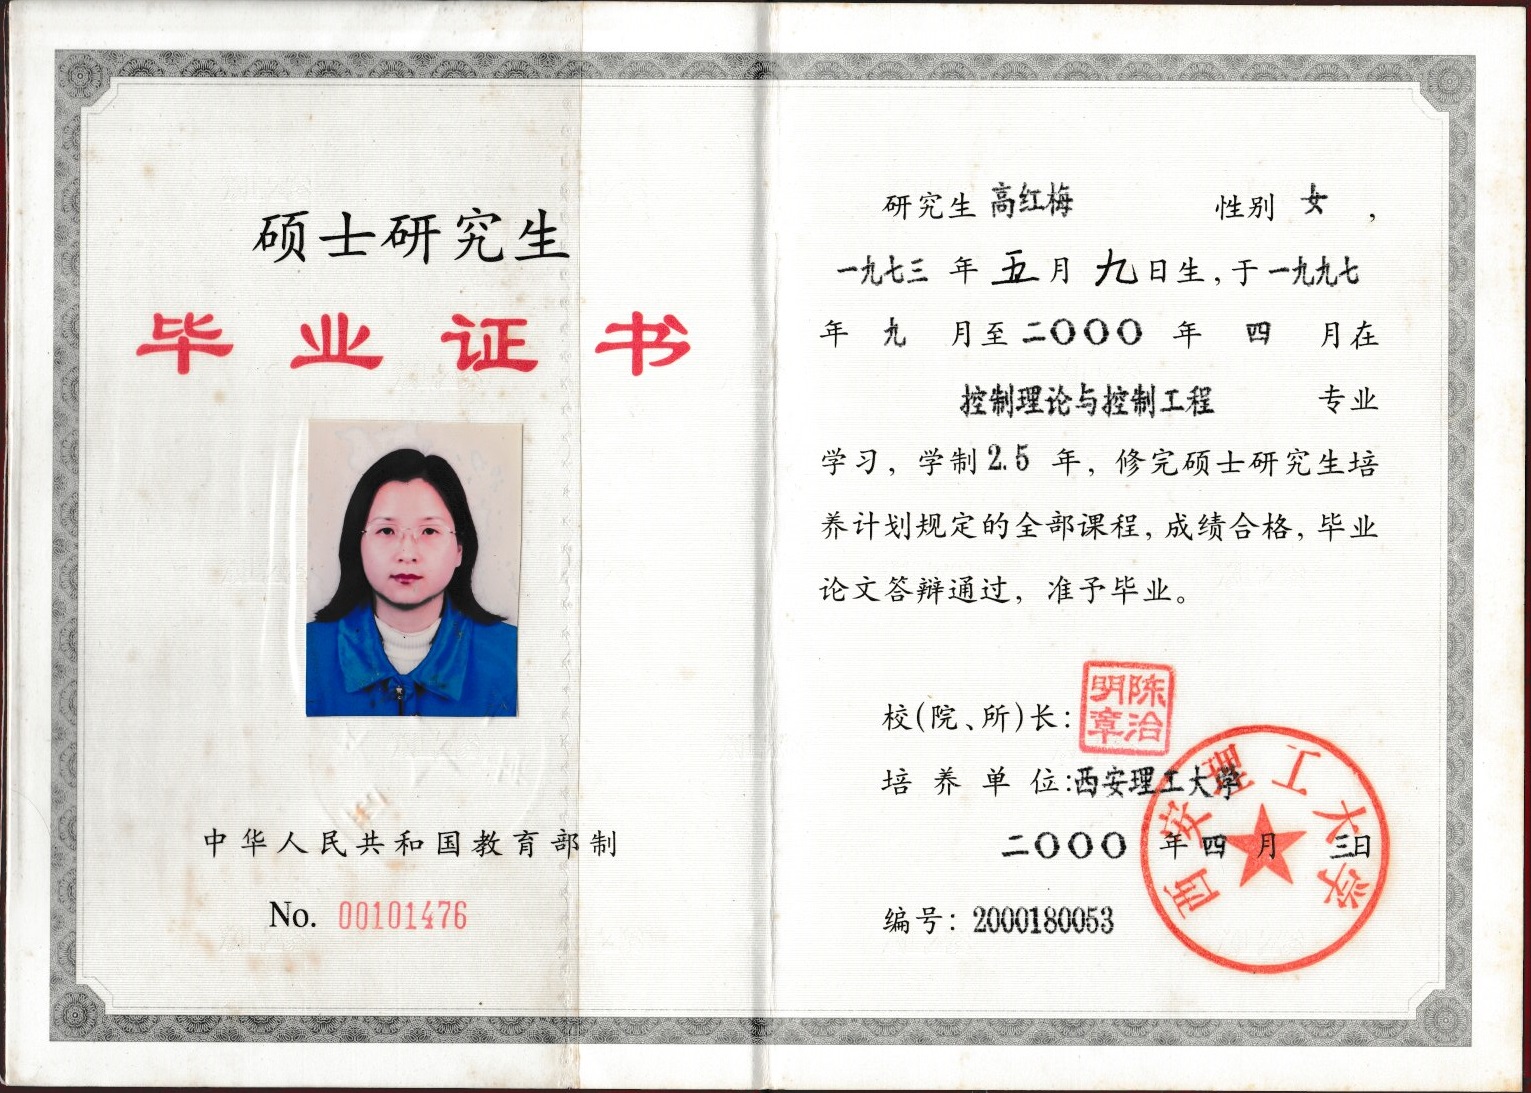 硕士研究生
毕业证书
中华人民共和国教育部制
No. 00101476
研究生 高红梅 性别 女 ,
一九七三 年 五 月 九 日生, 于 一九九七
年 九 月至 二〇〇〇 年 四 月在
控制理论与控制工程 专业
学习, 学制 2.5 年, 修完硕士研究生培
养计划规定的全部课程, 成绩合格, 毕业
论文答辩通过, 准予毕业。
校(院、所)长: 陈治明章
培养单位: 西安理工大学
西安理工大学
二〇〇〇 年 四 月 三日
编号: 2000180053